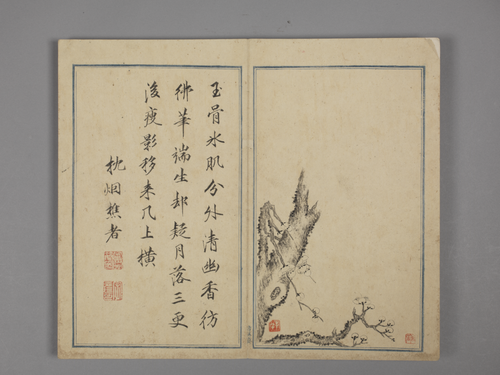 玉骨氷肌分外清幽香彷
彿筆端生却疑月落三更
後瘦影移来几上橫
枕烟樵者